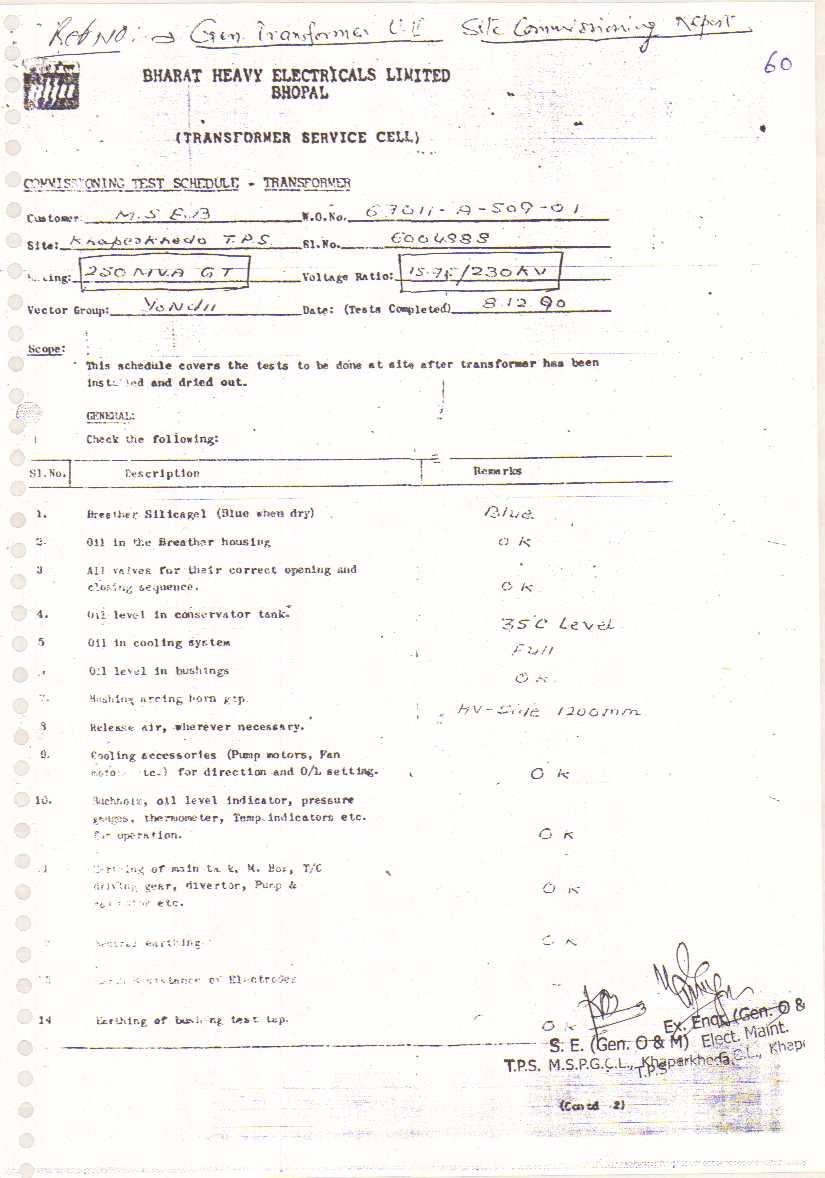 Ref No: → Gen. Transformer U-II Site Commissioning Report
60
BHARAT HEAVY ELECTRICALS LIMITED
BHOPAL
(TRANSFORMER SERVICE CELL)
COMMISSIONING TEST SCHEDULE - TRANSFORMER
Customer: M.S.E.B W.O.No. 67011-A-509-01
Site: Khaperkheda T.P.S. Sl.No. 6004888
250 MVA GT Voltage Ratio: 15.75/230KV
Vector Group: YoNd11 Date: (Tests Completed) 8.12.90
Scope:
This schedule covers the tests to be done at site after transformer has been
installed and dried out.
GENERAL:
Check the following:
Sl.No. Description Remarks
1. Breather Silicagel (Blue when dry) Blue
2. Oil in the Breather housing OK
3 All valves for their correct opening and
closing sequence. OK
4. Oil level in conservator tank. 35C Level
5 Oil in cooling system Full
Oil level in bushings OK
7. Bushing arcing horn gap. HV-Side 1200mm
8 Release air, wherever necessary.
9. Cooling accessories (Pump motors, Fan
motors etc.) for direction and O/L setting. OK
10. Buchholz, oil level indicator, pressure
gauges, thermometer, Temp.indicators etc.
for operation. OK
Earthing of main tank, M. Box, T/C
driving gear, divertor, Pump &
etc. OK
Neutral earthing OK
13 Earth Resistance of Electrodes
14 Earthing of bushing test tap. OK
Ex. Engr. (Gen. O &
S. E. (Gen. O & M) Elect. Maint.
T.P.S. M.S.P.G.C.L., Khaperkheda.
T.P.S. G.C.L., Khap
(Contd 2)